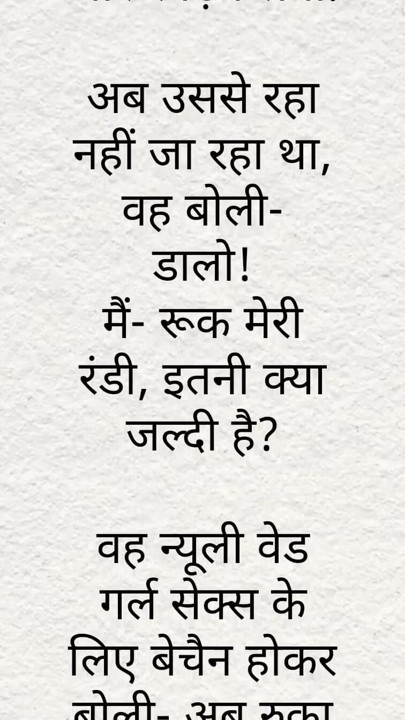 अब उससे रहा
नहीं जा रहा था,
वह बोली-
डालो!
मैं- रूक मेरी
रंडी, इतनी क्या
जल्दी है?
वह न्यूली वेड
गर्ल सेक्स के
लिए बेचैन होकर
बोली- अब रुका